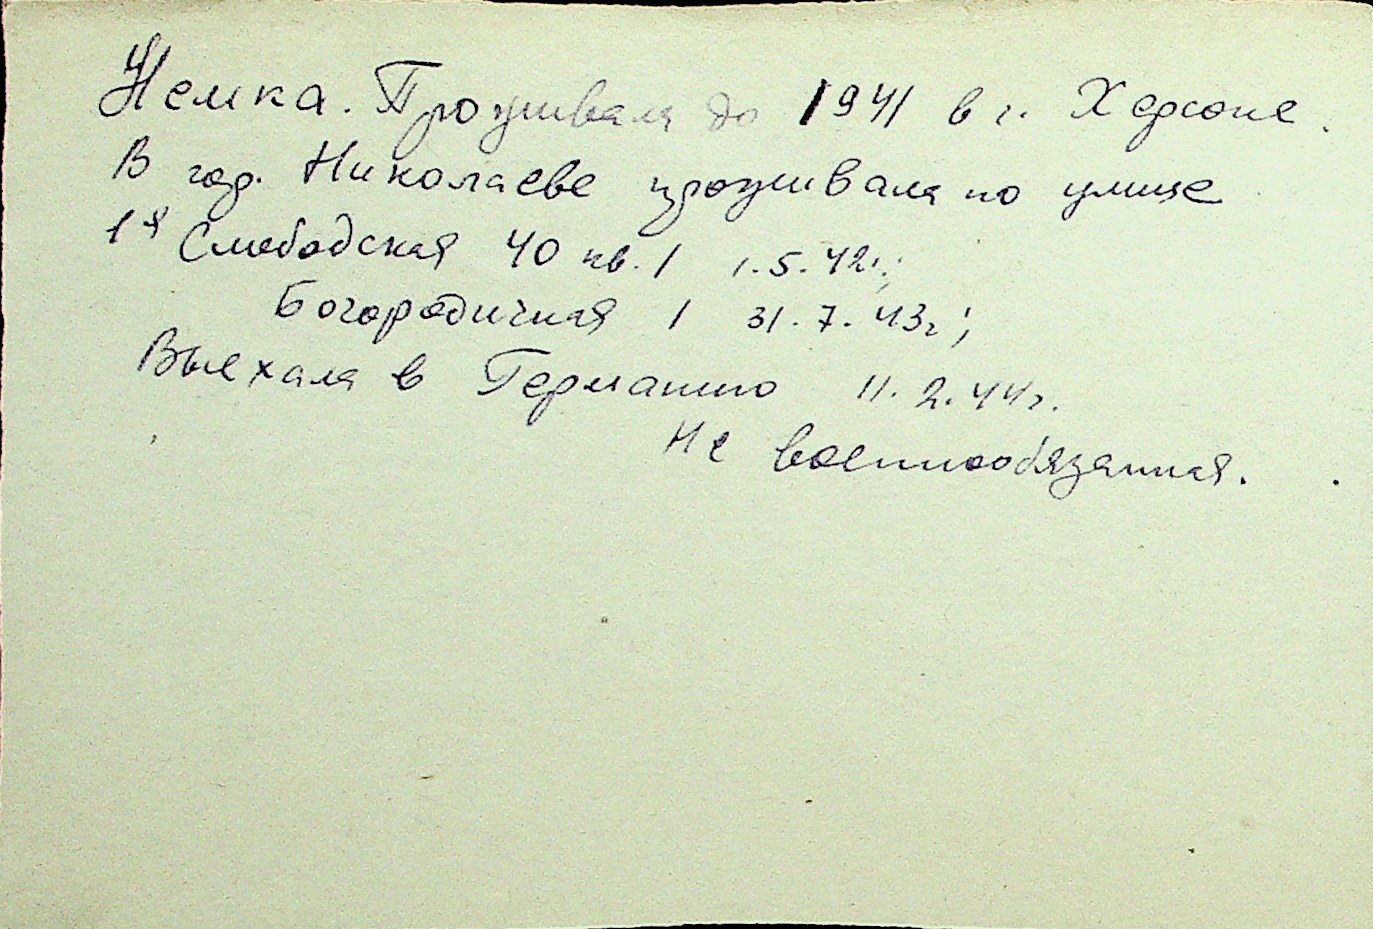 Немка. Проживала до 1941 в г. Херсоне.
В гор. Николаеве проживала по улице
1я Слободская 40 кв. 1 1.5.42г.;
Богородичная 1 31.7.43г;
Выехала в Германию 11.2.44г.
Не военнообязанная.